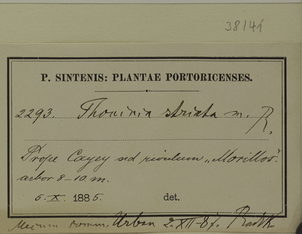 38141
P. SINTENIS: PLANTAE PORTORICENSES.
2293. Thouinia striata m. R.
Prope Cayey ad rivulum „Morillos"
arbor 8-10 m.
5. X. 1885. det.
comm. Urban 2.XII.87. Radlk